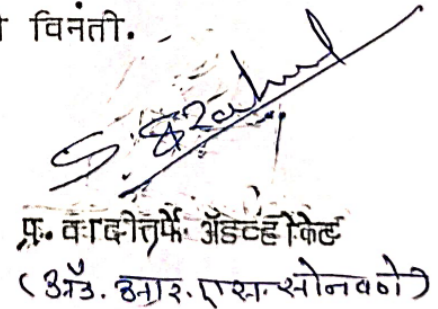 विनंती.
प्र. वादीतर्फे ॲडव्होकेट
(ॲड. आर. एस. सोनवणे)